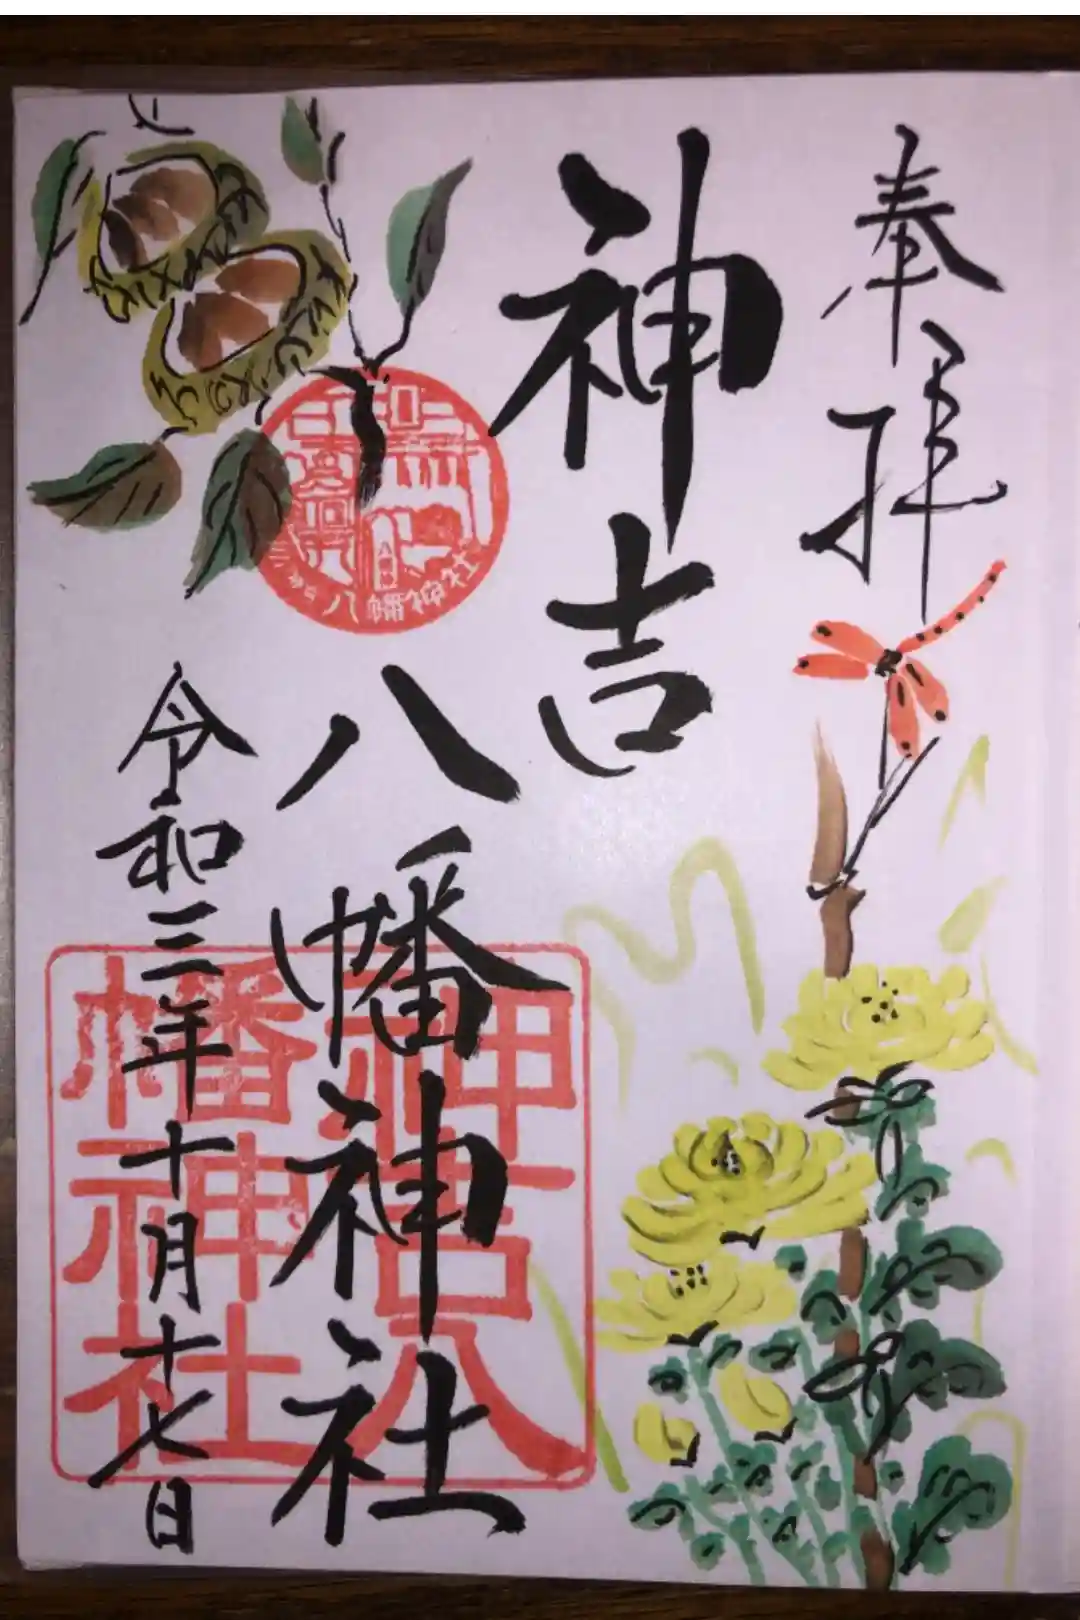 奉拝
神吉
八幡神社
令和三年十月十七日
八幡神社
神吉八
幡神社